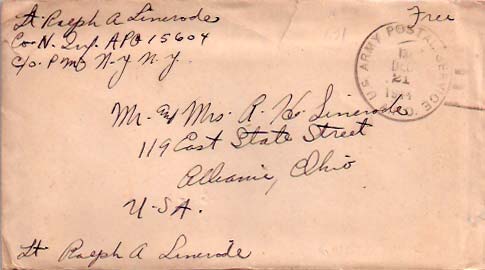 Lt Ralph A Linerode
Co. N. Inf. APO 15604
C/o. P M N. Y N. Y.
Free
U.S. ARMY POSTAL SERVICE
DEC
21
A.P.O.
Mr. and Mrs. R. H. Linerode
119 East State Street
Alliance, Ohio
U.S.A.
Lt Ralph A Linerode